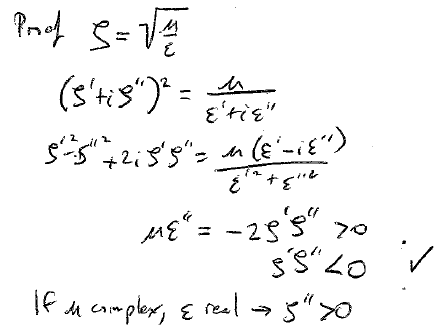 Proof ζ = √(μ/ε)
(ζ'+iζ'')² = μ/(ε'+iε'')
ζ'²-ζ''²+2iζ'ζ'' = μ(ε'-iε'')/(ε'²+ε''²)
με'' = -2ζ'ζ'' >0
ζ'ζ'' <0 ∴ ✓
If μ complex, ε real → ζ''>0